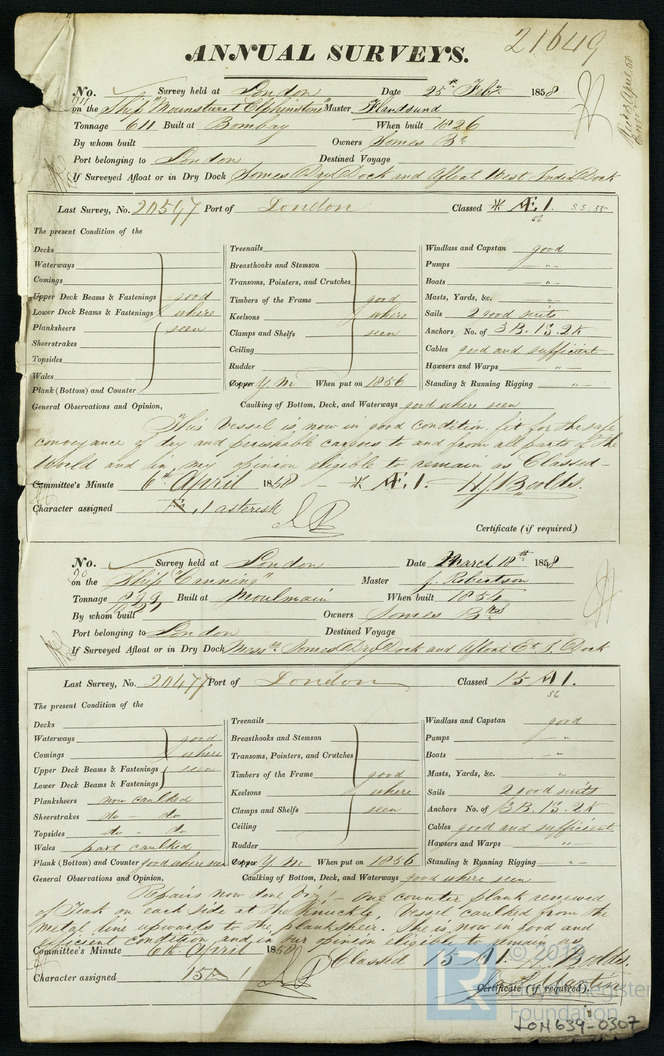 21649
ANNUAL SURVEYS.
No. Survey held at London Date 25th Feby 1858
on the Ship "Mounstuart Elphinstone" Master Handsund
Tonnage 611 Built at Bombay When built 1826
By whom built Owners Somes Brs
Port belonging to London Destined Voyage
If Surveyed Afloat or in Dry Dock Somes Dry Dock and Afloat West India Dock
Last Survey, No. 20547 Port of London Classed * Æ.1.
56
The present Condition of the
Decks
Waterways
Comings
Upper Deck Beams & Fastenings good
Lower Deck Beams & Fastenings where
Planksheers seen
Sheerstrakes
Topsides
Wales
Plank (Bottom) and Counter
Treenails
Breasthooks and Stemson
Transoms, Pointers, and Crutches
Timbers of the Frame good
Keelsons where
Clamps and Shelfs seen
Ceiling
Rudder
Copper Y.M. When put on 1856
Windlass and Capstan good
Pumps "
Boats "
Masts, Yards, &c. "
Sails 2 good suits
Anchors No. of 3B. 1S. 2K
Cables good and sufficient
Hawsers and Warps "
Standing & Running Rigging "
General Observations and Opinion, Caulking of Bottom, Deck, and Waterways good where seen
This Vessel is, now in good condition, fit for the safe
conveyance of dry and perishable cargoes to and from all parts of the
World and in my opinion eligible to remain as Classed –
Committee's Minute 6th April 1858 * Æ.1.
Character assigned Æ.1 asterisk
Certificate (if required)
No. Survey held at London Date March 18th 1858
on the Ship "Canning" Master J. Robertson
Tonnage Built at Moulmain When built 1854
By whom built Owners Somes Brs
Port belonging to London Destined Voyage
If Surveyed Afloat or in Dry Dock Messrs Somes Dry Dock and Afloat E. I. Dock
Last Survey, No. 20477 Port of London Classed 15 A 1.
56
The present Condition of the
Decks
Waterways good
Comings where
Upper Deck Beams & Fastenings seen
Lower Deck Beams & Fastenings
Planksheers now caulked
Sheerstrakes do – do
Topsides do – do
Wales part caulked
Plank (Bottom) and Counter good where seen
Treenails
Breasthooks and Stemson
Transoms, Pointers, and Crutches
Timbers of the Frame good
Keelsons where
Clamps and Shelfs seen
Ceiling
Rudder
Copper Y.M. When put on 1856
Windlass and Capstan good
Pumps "
Boats "
Masts, Yards, &c. "
Sails 2 good suits
Anchors No. of 3B. 1S. 2K
Cables good and sufficient
Hawsers and Warps "
Standing & Running Rigging "
General Observations and Opinion, Caulking of Bottom, Deck, and Waterways good where seen
Repairs now done viz: – One counter plank renewed
of Teak on each side at the knuckle, Vessel caulked from the
metal line upwards to the planksheer. She is, now in good and
efficient condition and in our opinion eligible to remain as
Committee's Minute 6th April 1858 Classed 15 A 1.
Character assigned 15 A 1
Certificate (if required)
Foundation
LON639-0307